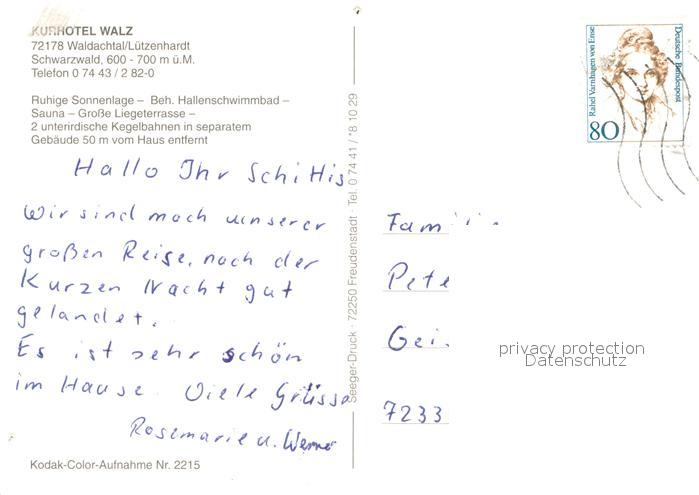 KURHOTEL WALZ
72178 Waldachtal/Lützenhardt
Schwarzwald, 600 - 700 m ü.M.
Telefon 0 74 43 / 2 82-0
Ruhige Sonnenlage – Beh. Hallenschwimmbad –
Sauna – Große Liegeterrasse –
2 unterirdische Kegelbahnen in separatem
Gebäude 50 m vom Haus entfernt
Hallo Ihr Schittis
Wir sind nach unserer
großen Reise, nach der
Kurzen Nacht gut
gelandet.
Es ist sehr schön
im Hause. Viele Grüsse
Rosemarie u. Werner
Kodak-Color-Aufnahme Nr. 2215
Seeger-Druck · 72250 Freudenstadt · Tel. 0 74 41 / *8 10 29
Rahel Varnhagen von Ense
Deutsche Bundespost
80
Fami
Pete
Gei
7233
privacy protection
Datenschutz